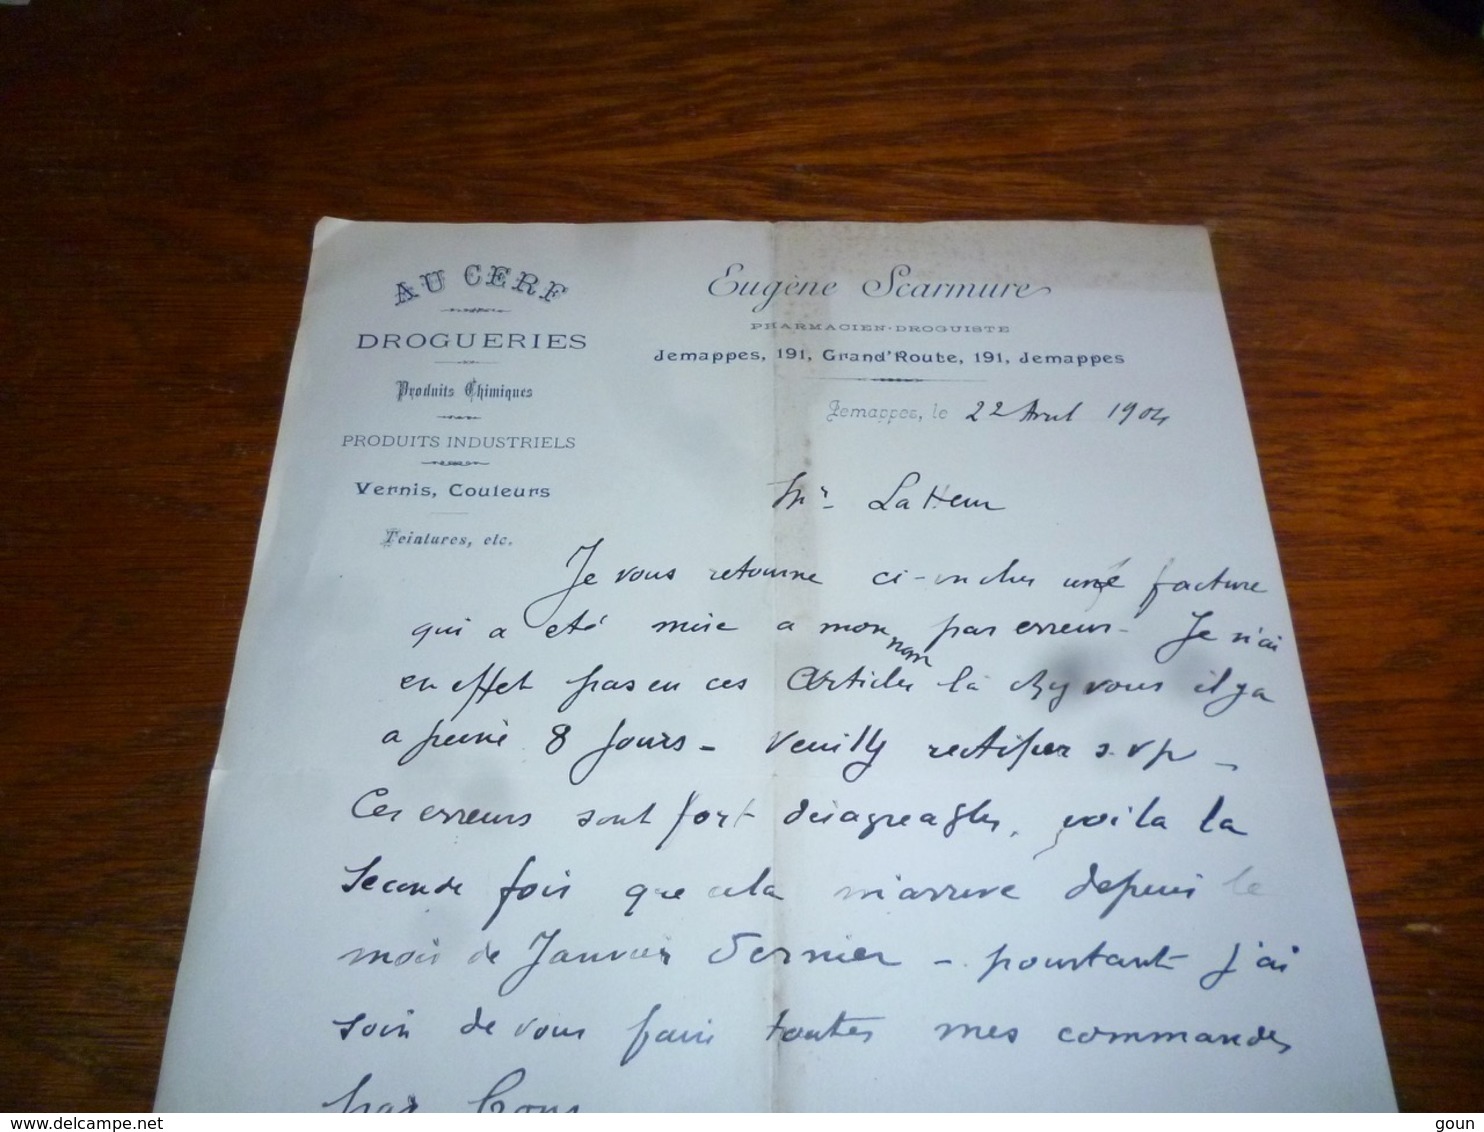 AU CERF
DROGUERIES
Produits Chimiques
PRODUITS INDUSTRIELS
Vernis, Couleurs
Teintures, etc.
Eugène Scarmure
PHARMACIEN-DROGUISTE
Jemappes, 191, Grand'Route, 191, Jemappes
Jemappes, le 22 Avril 1904
Mr Latteur
Je vous retourne ci-inclus une facture
qui a été mise a mon nom par erreur - Je n'ai
en effet pas eu ces articles là chez vous il y a
a peine 8 jours - Veuillez rectifier s.v.p -
Ces erreurs sont fort désagreables, voila la
seconde fois que cela m'arrive depuis le
mois de Janvier dernier - pourtant j'ai
soin de vous faire toutes mes commandes
par
delcampe.net
goun